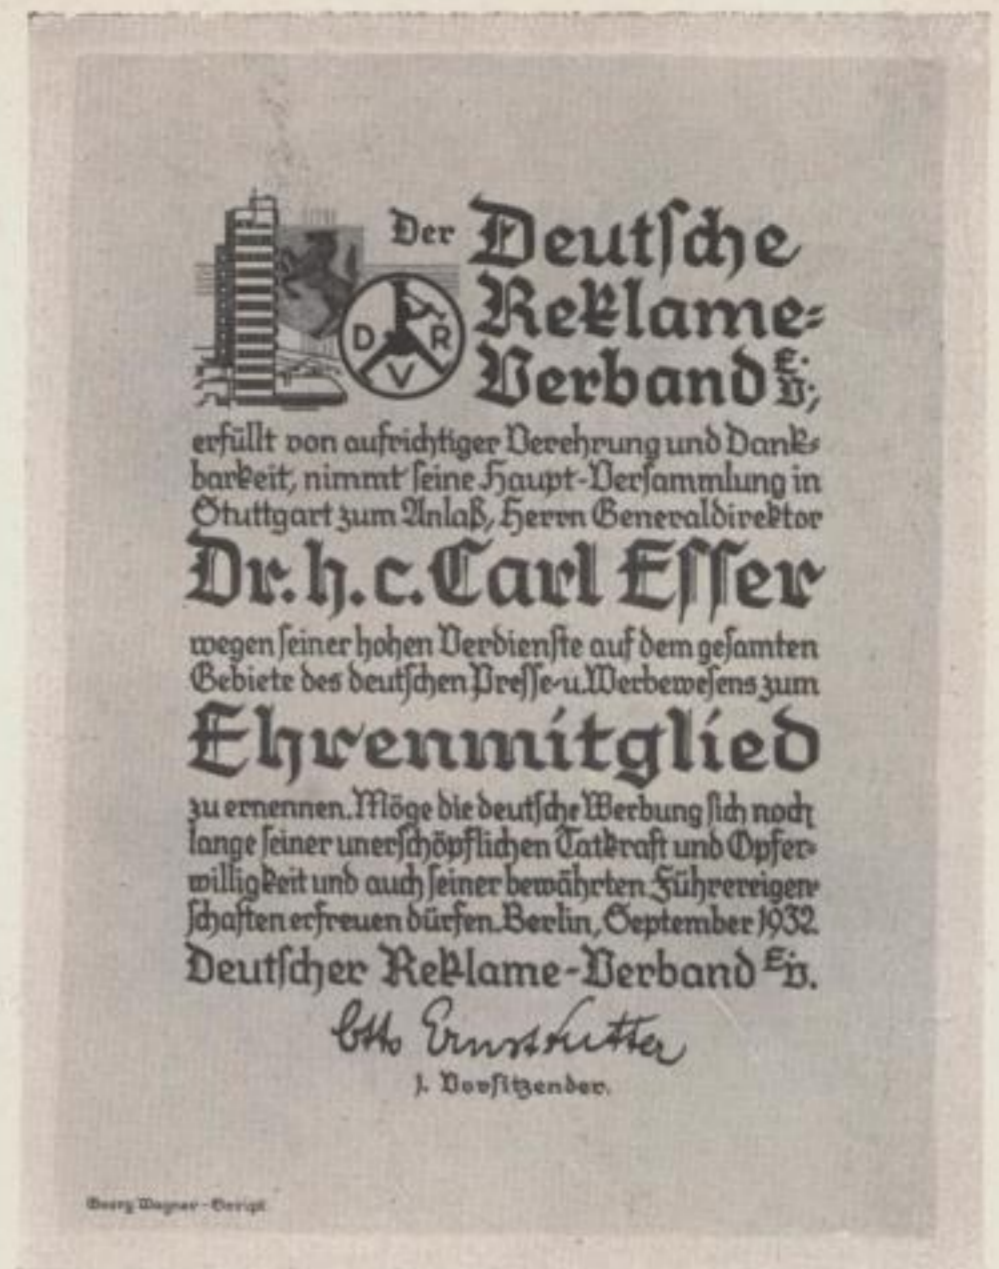 Der Deutsche
Reklame-
Verband E.V.,
D R V
erfüllt von aufrichtiger Verehrung und Dank-
barkeit, nimmt seine Haupt-Versammlung in
Stuttgart zum Anlaß, Herrn Generaldirektor
Dr. h. c. Carl Esser
wegen seiner hohen Verdienste auf dem gesamten
Gebiete des deutschen Presse- u. Werbewesens zum
Ehrenmitglied
zu ernennen. Möge die deutsche Werbung sich noch
lange seiner unerschöpflichen Tatkraft und Opfer-
willigkeit und auch seiner bewährten Führereigen-
schaften erfreuen dürfen. Berlin, September 1932.
Deutscher Reklame-Verband E.V.
Otto Ernst Sutter
1. Vorsitzender.
Georg Wagner-Script